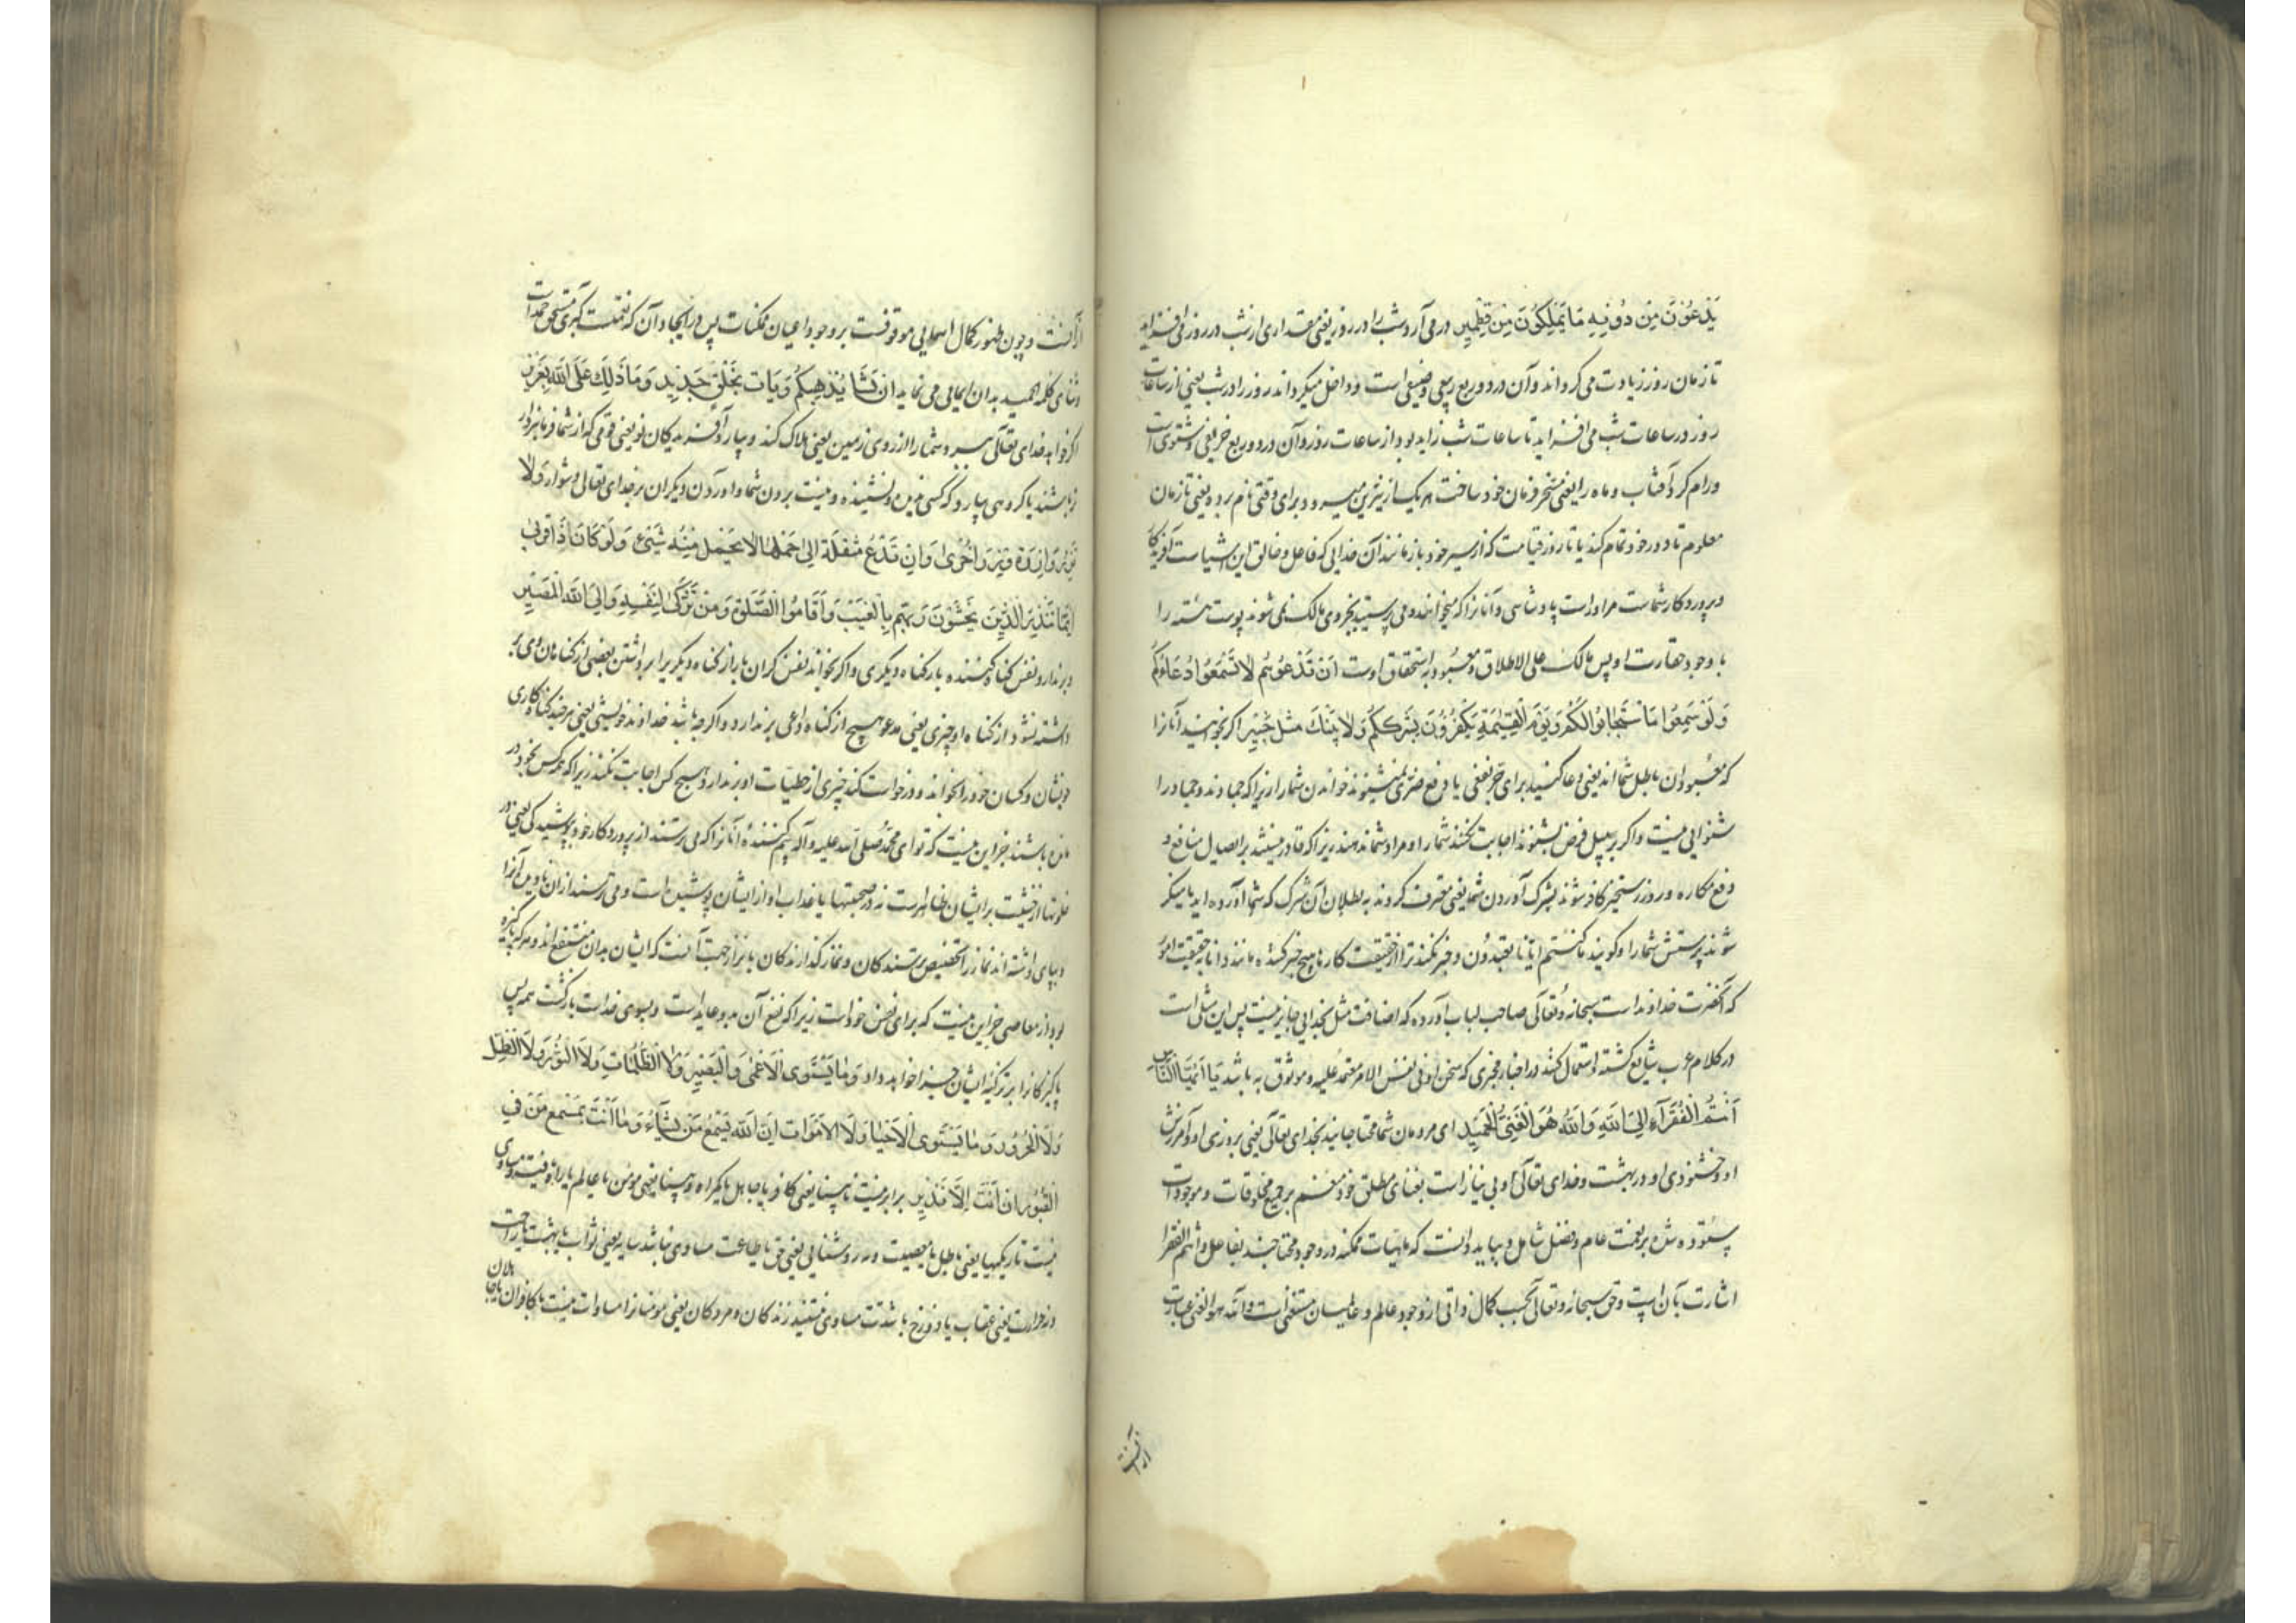 يَدْعُونَ مِن دُونِهِ مَا يَمْلِكُونَ مِن قِطْمِيرٍ در می آرد شب را در روز یعنی مقداری از شب در روز می افزاید
تا زمان روز زیادت می گرداند و آن در دو ربع ربیعی و صیفی است و داخل میگرداند روز را در شب یعنی از ساعات
روز در ساعات شب می افزاید تا ساعات شب زاید بود از ساعات روز و آن در دو ربع خریفی و شتوی است
و رام کرد آفتاب و ماه را یعنی مسخر فرمان خود ساخت هر یک از نیرین میرود برای وقتی نام برده یعنی تا زمان
معلوم تا دور خود تمام کند یا تا روز قیامت که از سیر خود باز مانند آن خدایی که فاعل و خالق این اشیاست آفریدگار
و پروردگار شماست مر او راست پادشاهی و آنانرا که میخوانند و می پرستید بجز وی مالک نمی شوند پوست هسته را
با وجود حقارت او پس مالک علی الاطلاق و معبود به استحقاق اوست اَن تَدْعُوهُم لَا تَسْمَعُوا دُعَاءَكُم
وَلَوْ سَمِعُوا مَا اسْتَجَابُوا لَكُمْ وَيَوْمَ الْقِيمَةِ يَكْفُرُونَ بِشِرْكِكُمْ وَلَا يُنَبِّئُكَ مِثْلُ خَبِيرٍ اگر بخوانید آنانرا
که معبودان باطل شما اند یعنی دعا کنید برای جر نفعی یا دفع ضرری نشنوند خواندن شما را زیرا که جمادند و جماد را
شنوایی نیست و اگر بر سبیل فرض بشنوند اجابت نکنند شما را و مراد شما ندهند زیرا که قادر نیستند بر ایصال منافع و
دفع مکاره و روز رستخیز کافر شوند بشرک آوردن شما یعنی معترف گردند به بطلان آن شرک که شما آورده اید یا منکر
شوند پرستش شما را و گویند ما کنتم ایانا تعبدون و خبر نکند ترا از حقیقت کارها هیچ خبر کننده مانند دانا بحقیقت امور
که آنحضرت خداوند است سبحانه و تعالی صاحب لباب آورده که اضافت مثل بخدایی جایز نیست پس این مثلی است
در کلام عرب شایع گشته و استعمال کنند در اخبار مخبری که سخن او فی نفس الامر معتمد علیه و موثوق به باشد يَا اَيُّهَا النَّاسُ
اَنْتُمُ الْفُقَرَآءُ اِلَى اللهِ وَاللهُ هُوَ الْغَنِيُّ الْحَمِيدُ ای مردمان شما محتاجانید بخدای تعالی یعنی بروزی او و آمرزش
او و خشنودی او و در بهشت و خدای تعالی او بی نیاز است بغنای مطلق خود منعم بر جمیع مخلوقات و موجودات
ستوده شده بر نعمت عام و فضل شامل و بباید دانست که ماهیات ممکنه در وجود محتاجند بفاعل و انتم الفقرا
اشارت بآن است و حق سبحانه و تعالی بحسب کمال ذاتی از وجود عالم و عالمیان مستغنی است و الله هو الغنی عبارت
از آنست
از آنست و چون ظهور کمال اسمایی موقوفست بر وجود اعیان ممکنات پس در ایجاد آن که نعمتست کبری مستحق حمد است
و ثنای کلمه الحمید بدان ایمایی می نماید اِنْ يَشَأْ يُذْهِبْكُمْ وَيَأْتِ بِخَلْقٍ جَدِيدٍ وَمَا ذَلِكَ عَلَى اللهِ بِعَزِيزٍ
اگر خواهد خدای تعالی ببرد شما را از روی زمین یعنی هلاک کند و بیارد آفریدگان نو یعنی قومی که از شما فرمانبردار
تر باشند یا گروهی بیارد که کسی ندیده و نشنیده و نیست بردن شما و آوردن دیگران بر خدای تعالی دشوار وَلَا
تَزِرُ وَازِرَةٌ وِزْرَ اُخْرٰى وَاِن تَدْعُ مُثْقَلَةٌ اِلٰى حِمْلِهَا لَا يُحْمَلْ مِنْهُ شَيْءٌ وَلَوْ كَانَ ذَا قُرْبٰى
اِنَّمَا تُنْذِرُ الَّذِينَ يَخْشَوْنَ رَبَّهُم بِالْغَيْبِ وَاَقَامُوا الصَّلٰوةَ وَمَنْ تَزَكّٰى لِنَفْسِهِ وَاِلَى اللهِ الْمَصِيرُ
و بر ندارد نفس گناه کننده بار گناه دیگری و اگر بخواند نفس گران بار از گناه دیگریرا برداشتن بعضی از گناهان وی بر
داشته نشود از گناه او چیزی یعنی مدعو هیچ از گناه داعی بر ندارد و اگر چه باشد خداوند خویشی یعنی هر چند گناه کاری
خویشان و کسان خود را بخواند و درخواست کند چیزی از خطیات او بر ندارد هیچ کس اجابت نکند زیرا که هر کس بخود در
مانده باشند جز این نیست که تو ای محمد صلی الله علیه و آله بیم کننده آنانرا که می ترسند از پروردگار خود بپوشیدگی یعنی در
خلوتها از خشیت بر ایشان ظاهر است نه در صحبتها یا عذاب او از ایشان پوشیده است و می ترسند از آن نادیده آنرا
و بپای داشته اند نماز را تخصیص ترسندگان و نماز گذارندگان بانذار جهت آنست که ایشان بدان منتفع اند و هر که پاکیزه
بود از معاصی جز این نیست که برای نفس خود است زیرا که نفع آن بدو عاید است و بسوی خدا است بازگشت همه پس
پاکیزگانرا بر تزکیه ایشان جزا خواهد داد وَمَا يَسْتَوِى الْاَعْمٰى وَالْبَصِيرُ وَلَا الظُّلُمَاتُ وَلَا النُّورُ وَلَا الظِّلُّ
وَلَا الْحَرُورُ وَمَا يَسْتَوِى الْاَحْيَاءُ وَلَا الْاَمْوَاتُ اِنَّ اللهَ يُسْمِعُ مَنْ يَشَآءُ وَمَا اَنْتَ بِمُسْمِعٍ مَنْ فِي
الْقُبُورِ اِنْ اَنْتَ اِلَّا نَذِيرٌ برابر نیست نابینا یعنی کافر یا جاهل یا گمراه و بینا یعنی مومن یا عالم یا راه یافته و مساوی
نیست تاریکیها یعنی باطل یا معصیت و نه روشنایی یعنی حق یا طاعت مساوی نباشد سایه یعنی ثواب یا بهشت یا راحت
و نه حرارت یعنی عقاب یا دوزخ یا شدت مساوی نیستند زندگان و مردگان یعنی مومنانرا مساوات نیست با کافران یا جاهلان